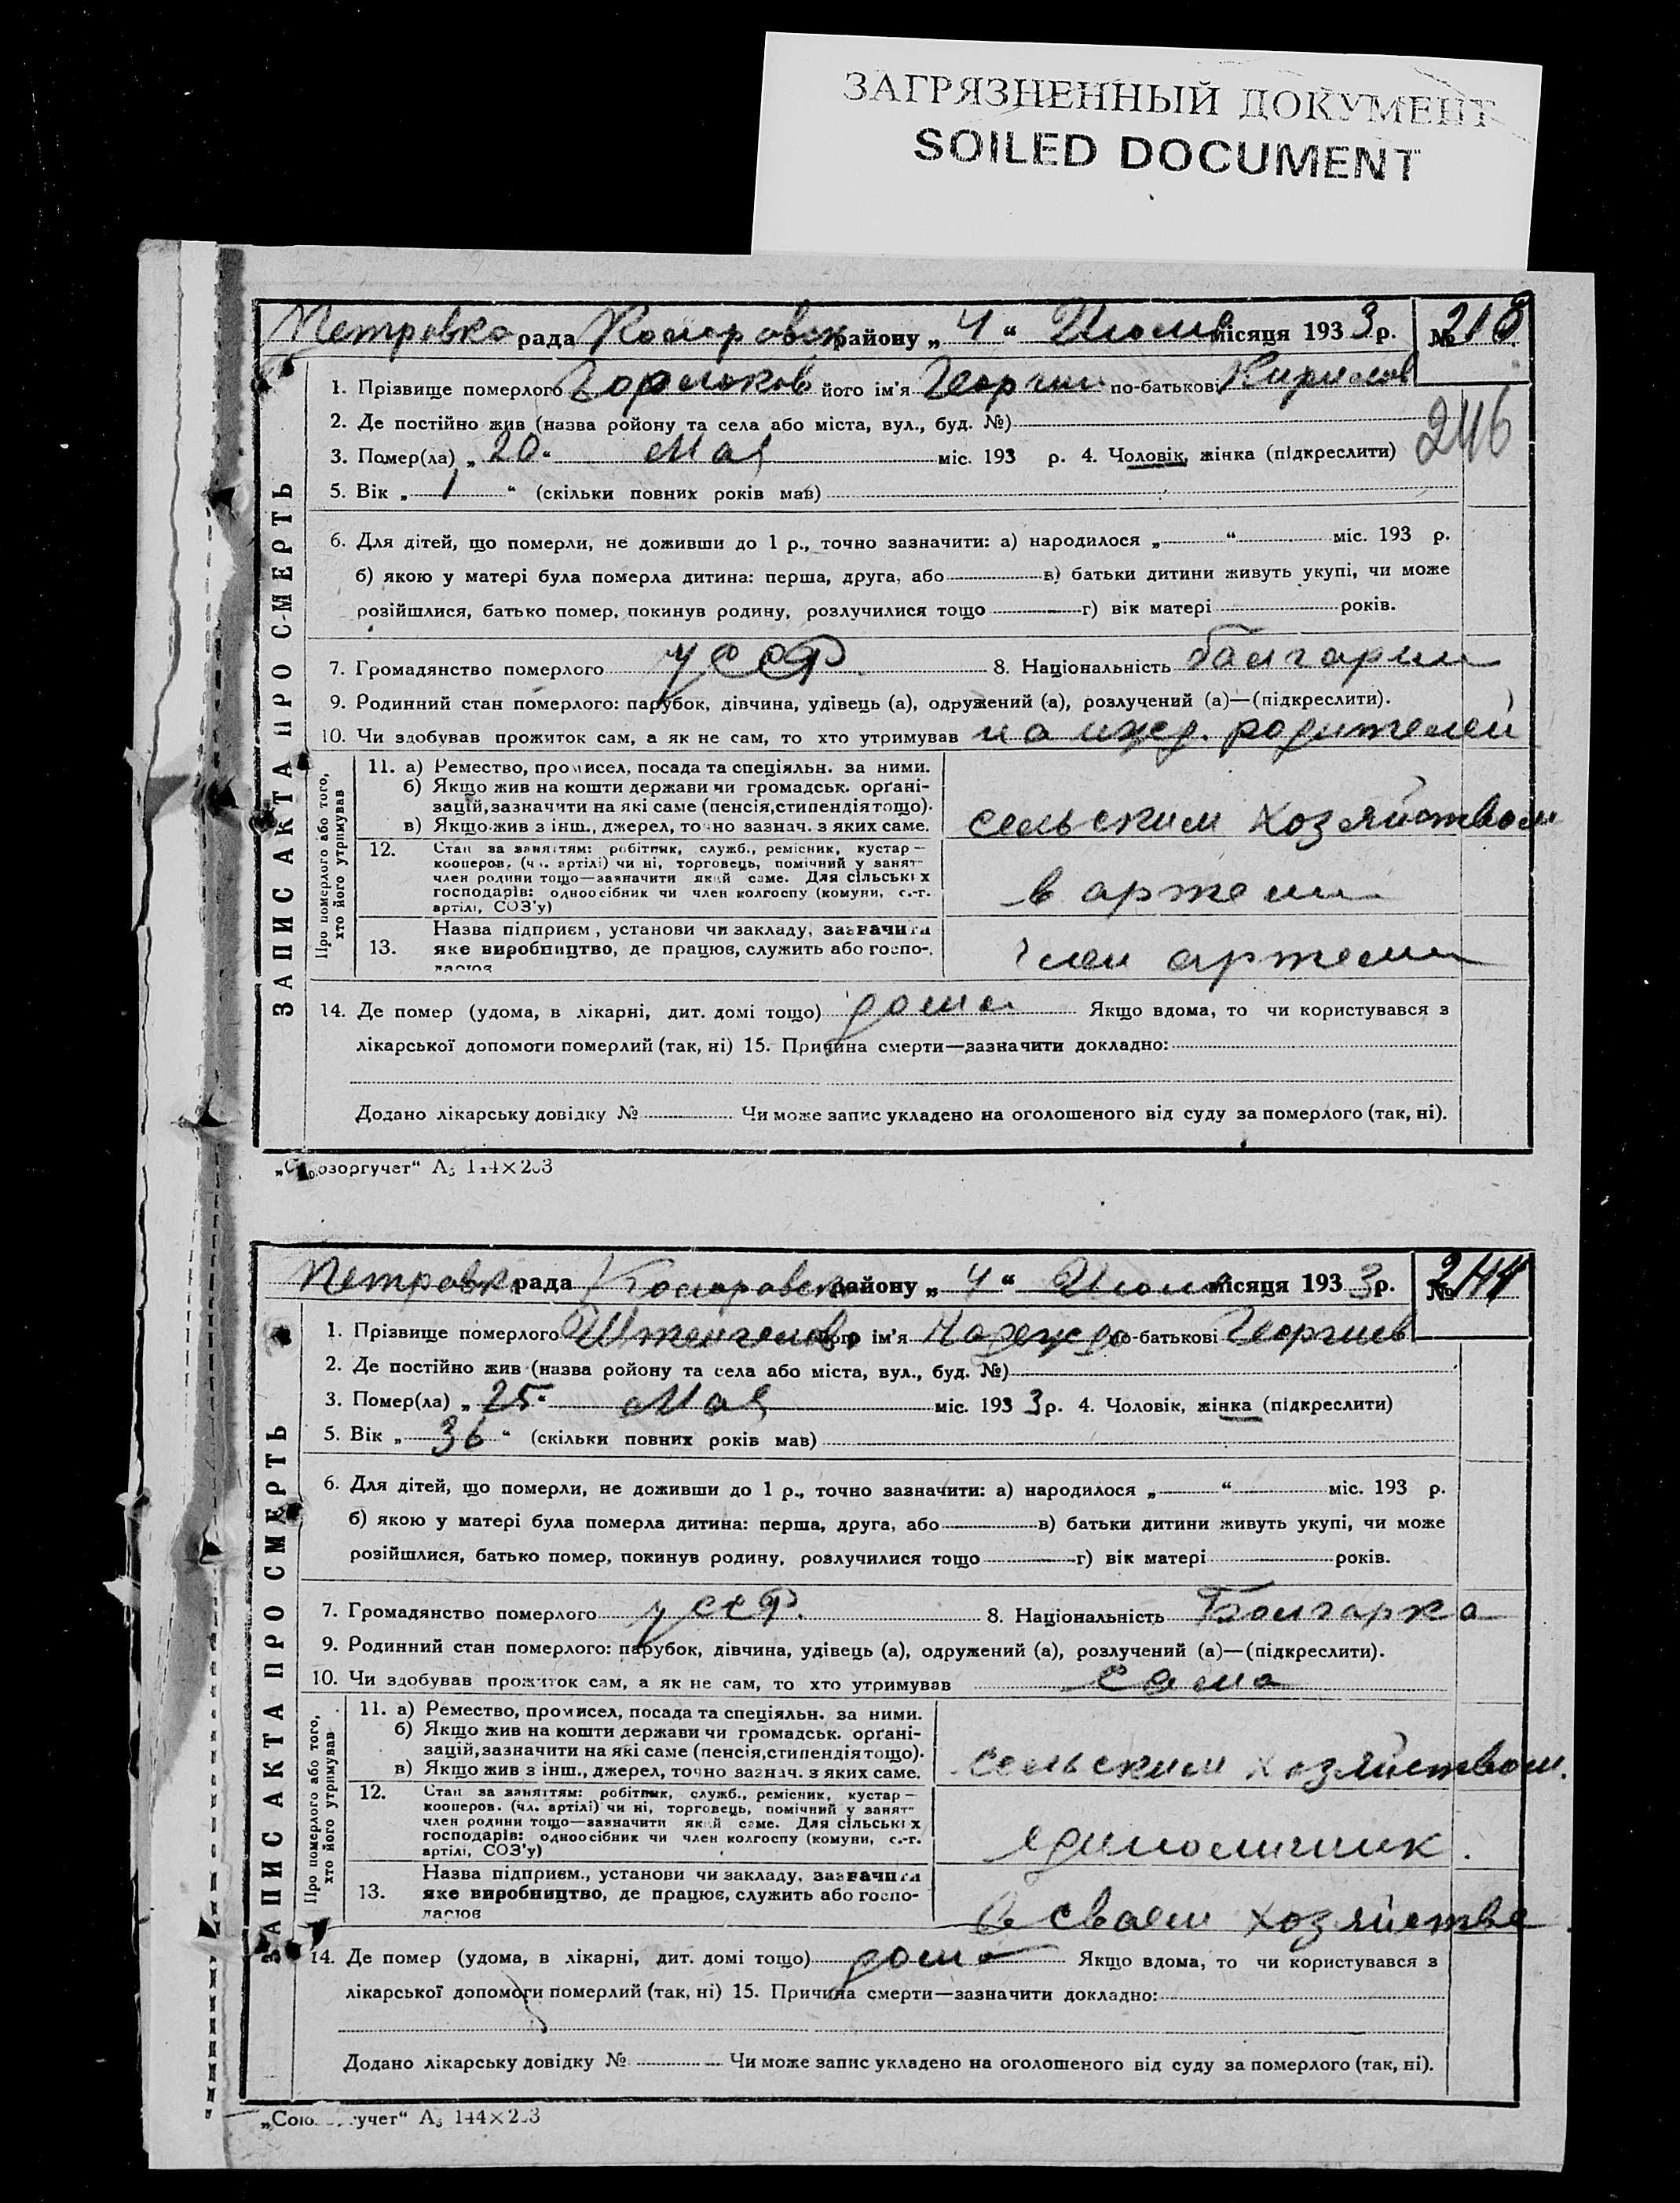 ЗАГРЯЗНЕННЫЙ ДОКУМЕНТ
SOILED DOCUMENT
Петровка рада району „ 4 “ місяця 193 3 р. №
1. Прізвище померлого його ім'я Георгий по-батькові Кирилов
246
2. Де постійно жив (назва району та села або міста, вул., буд. №)
3. Помер(ла) „ 20 “ Мая міс. 193 р. 4. Чоловік, жінка (підкреслити)
5. Вік „ 1 “ (скільки повних років мав)
6. Для дітей, що померли, не доживши до 1 р., точно зазначити: а) народилося „ “ міс. 193 р.
б) якою у матері була померла дитина: перша, друга, або в) батьки дитини живуть укупі, чи може
розійшлися, батько помер, покинув родину, розлучилися тощо г) вік матері років.
7. Громадянство померлого УССР 8. Національність
9. Родинний стан померлого: парубок, дівчина, удівець (а), одружений (а), розлучений (а)—(підкреслити).
10. Чи здобував прожиток сам, а як не сам, то хто утримував на ижд. родителей
ЗАПИС АКТА ПРО СМЕРТЬ
Про померлого або того,
хто його утримував
11. а) Ремество, промисел, посада та спеціяльн. за ними.
б) Якщо жив на кошти держави чи громадськ. орґані-
зацій, зазначити на які саме (пенсія, стипендія тощо).
в) Якщо жив з інш., джерел, точно зазнач. з яких саме.
сельским хозяйством
12. Стан за заняттям: робітник, служб., ремісник, кустар—
кооперов. (чл. артілі) чи ні, торговець, помічний у занят-
член родини тощо—зазначити який саме. Для сільських
господарів: одноосібник чи член колгоспу (комуни, с.-г.
артілі, СОЗ'у)
в артели
13. Назва підприєм., установи чи закладу, зазначити
яке виробництво, де працює, служить або госпо-
дарює
член артели
14. Де помер (удома, в лікарні, дит. домі тощо) дома Якщо вдома, то чи користувався з
лікарської допомоги померлий (так, ні) 15. Причина смерти—зазначити докладно:
Додано лікарську довідку № Чи може запис укладено на оголошеного від суду за померлого (так, ні).
„Союзоргучет“ А₅ 144×203
Петровка рада району „ 4 “ місяця 193 3 р. №
1. Прізвище померлого його ім'я Надежда по-батькові Георгиев
2. Де постійно жив (назва району та села або міста, вул., буд. №)
3. Помер(ла) „ 25 “ Мая міс. 193 3 р. 4. Чоловік, жінка (підкреслити)
5. Вік „ 36 “ (скільки повних років мав)
6. Для дітей, що померли, не доживши до 1 р., точно зазначити: а) народилося „ “ міс. 193 р.
б) якою у матері була померла дитина: перша, друга, або в) батьки дитини живуть укупі, чи може
розійшлися, батько помер, покинув родину, розлучилися тощо г) вік матері років.
7. Громадянство померлого УССР. 8. Національність Болгарка
9. Родинний стан померлого: парубок, дівчина, удівець (а), одружений (а), розлучений (а)—(підкреслити).
10. Чи здобував прожиток сам, а як не сам, то хто утримував сама
ЗАПИС АКТА ПРО СМЕРТЬ
Про померлого або того,
хто його утримував
11. а) Ремество, промисел, посада та спеціяльн. за ними.
б) Якщо жив на кошти держави чи громадськ. орґані-
зацій, зазначити на які саме (пенсія, стипендія тощо).
в) Якщо жив з інш., джерел, точно зазнач. з яких саме.
сельским хозяйством.
12. Стан за заняттям: робітник, служб., ремісник, кустар—
кооперов. (чл. артілі) чи ні, торговець, помічний у занят-
член родини тощо—зазначити який саме. Для сільських
господарів: одноосібник чи член колгоспу (комуни, с.-г.
артілі, СОЗ'у)
единоличник.
13. Назва підприєм., установи чи закладу, зазначити
яке виробництво, де працює, служить або госпо-
дарює
в своем хозяйстве.
14. Де помер (удома, в лікарні, дит. домі тощо) дома Якщо вдома, то чи користувався з
лікарської допомоги померлий (так, ні) 15. Причина смерти—зазначити докладно:
Додано лікарську довідку № Чи може запис укладено на оголошеного від суду за померлого (так, ні).
„Союзоргучет“ А₅ 144×203